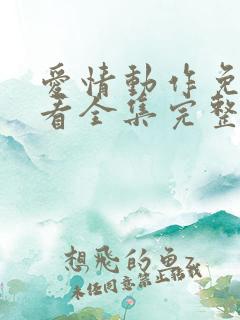 愛情動作免
看全集完整
想飛的魚
未任同意禁止轉載